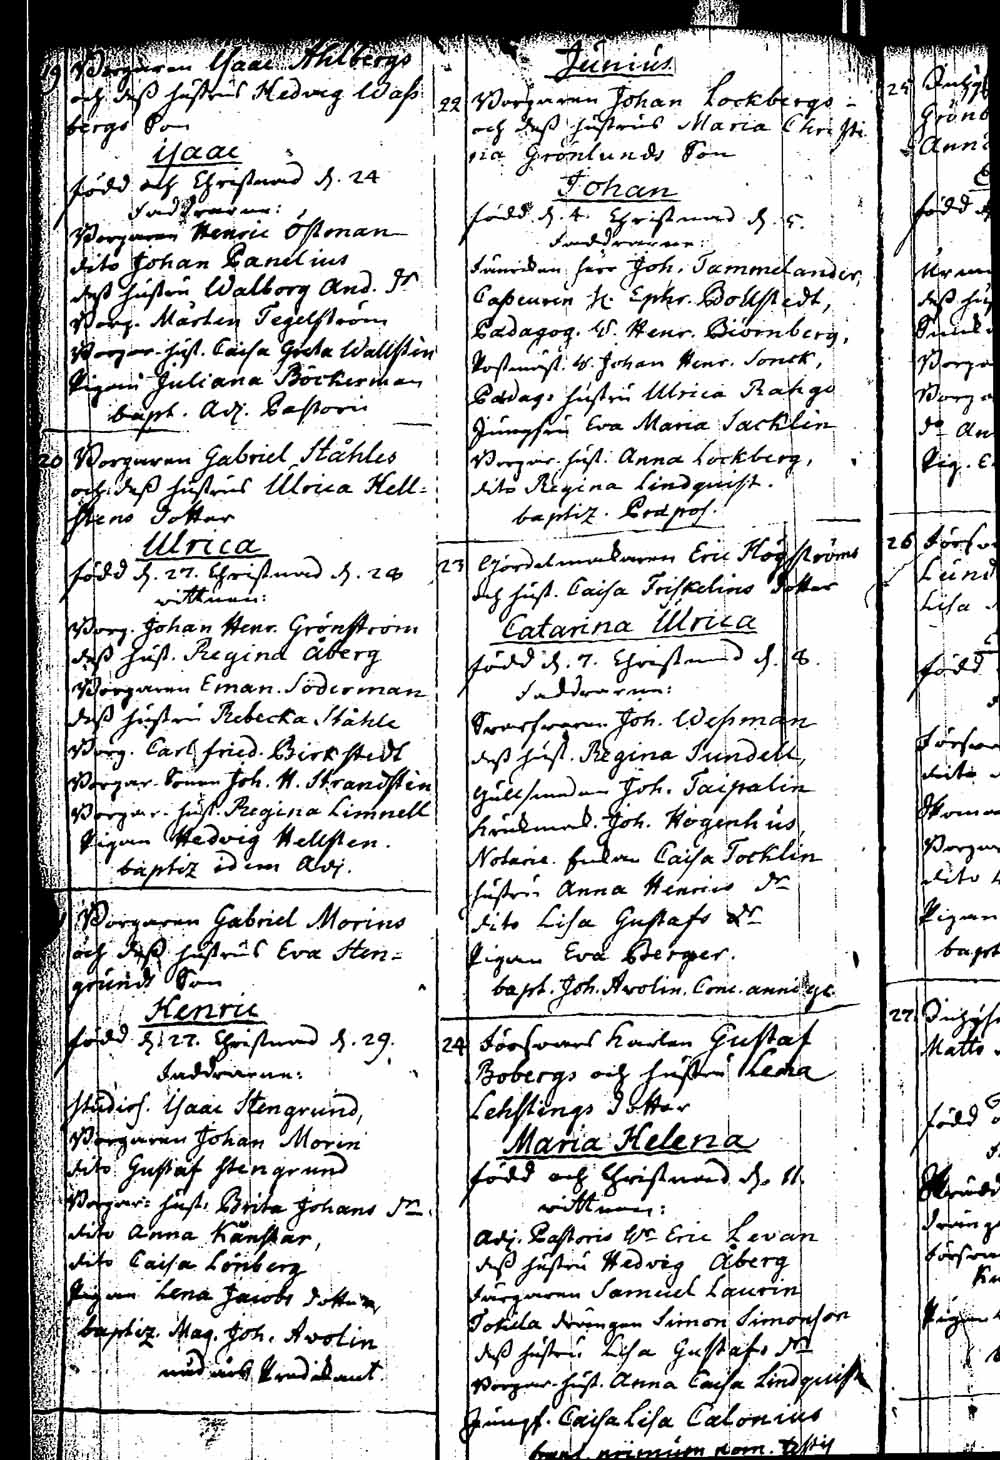 19 Borgaren Isaac Ahlbergs
och dess hustrus Hedvig Wass
bergs Son
Isaac
född och Christnad d. 24
Faddrarne:
Borgaren Henric Östman
dito Johan Panelius
dess hustru Walborg And. dr
Borg. Mårten Tegelström
Borgar-hust. Caisa Greta Wallstén
Pigan Juliana Böckerman
bapt. Adj. Pastoris
20 Borgaren Gabriel Ståhles
och dess hustrus Ulrica Hell=
stens Dotter
Ulrica
född d. 27. Christnad d. 28
vittnen:
Borg. Johan Henr. Grönström
dess hust. Regina Åberg
Borgaren Eman. Söderman
dess hustru Rebecka Ståhle
Borg. Carl Fried. Birkstedt
Borgar-Sonen Joh. H. Strandstén
Borgar-hust. Regina Limnell
Pigan Hedvig Hellsten.
baptiz idem Adj.
Borgaren Gabriel Morins
och dess hustrus Eva Sten=
grunds Son
Henric
född d. 27. Christnad d. 29.
Faddrarne:
Studios. Isaac Stengrund,
Borgaren Johan Morin
dito Gustaf Stengrund
Borgar: hust: Brita Johans dr.
dito Anna
dito Caisa Lönberg
Pigan Lena Jacobs Dotter,
baptiz. Mag. Joh. Avolin
Predikant.
Junius
22 Borgaren Johan Lockbergs
och dess hustrus Maria Christi
na Grönlunds Son
Johan
född d. 4. Christnad d. 5.
Faddrarne:
herr Joh. Tammelander,
Casseuren H. Ephr. Bollstedt,
Pædagog. Hr. Henr. Biörnberg,
Postmäst. Hr. Johan Henr. Sonck,
Pædag: hustru Ulrica Rahge
Jungfru Eva Maria Sacklin
Borgar-hust. Anna Lockberg,
dito Regina Lindquist.
baptiz. Præpos.
23 Gördelmakaren Eric Högströms
och hust. Caisa Friskelins Dotter
Catarina Ulrica
född d. 7. Christnad d. 8.
Faddrarne:
Svarfvaren Joh. Wessman
dess hust. Regina Sundell,
Gullsmeden Joh. Taipalin
Krukmak. Joh. Högenhus,
Notarie frukan Caisa Tocklin
hustru Anna Henrics dr
dito Lisa Gustafs dr
Pigan Eva Berger.
bapt. Joh. Avolin. Conc. anni
24 Försvars Karlen Gustaf
Bobergs och hustru Lena
Lehstings Dotter
Maria Helena
född och Christnad d. 11.
vittnen:
Adj. Pastoris Hr Eric Levan
dess hustru Hedvig Åberg
Färgaren Samuel Laurin
drängen Simon Simonson
dess hustru Lisa Gustafs dr
Borgar-hust. Anna Caisa Lindquist
Jungf. Caisa Lisa Calonius
bapt. primum nom. testis
25
Grönb
Anna
född d
dess hus
Borga
Borga
do An
Pig. E
26 Försva
Lund
Lisa
född
Försva
dito
Borgar
dito
Pigan
bapt
27.
Matts
född
Försva
Pigan